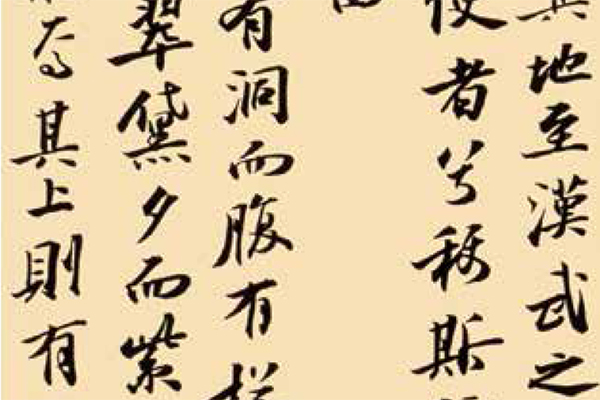 地至漢武之
使者兮稱斯
有洞而腹有
翠黛夕而紫
其上則有